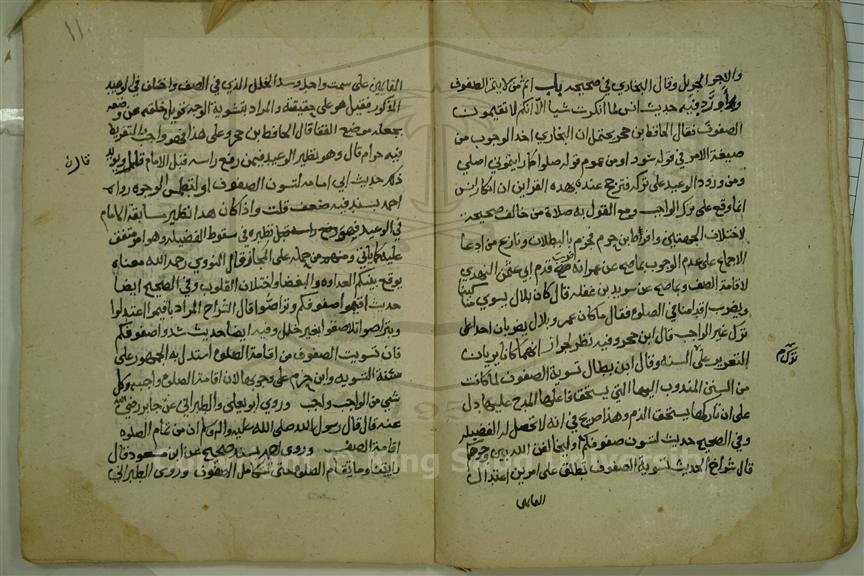 والاجر الجزيل وقال البخاري في صحيحه باب اثم من لا يتم الصفوف
واورد فيه حديث انس لما انكرت شيا الا انكم لا تقيمون
الصفوف فقال الحافظ بن حجر يحتمل ان البخاري اخذ الوجوب من
صيغة الامر في قوله سووا ومن عموم قوله صلوا كما رايتموني اصلي
ومن ورود الوعيد على تركه فترجح عنده بهذه القراين ان انكار انس
انما وقع على ترك الواجب ومع القول به صلاة من خالف صحيحة
لاختلاف الجهتين وافرط ابن حزم فجزم بالبطلان ونازع من ادعا
الاجماع على عدم الوجوب بما صح عن عمر انه ضرب قدم ابي عثمن النهدي
لاقامة الصف وبما صح عن سويد بن غفله قال كان بلال يسوي مناكبنا
ويضرب اقدامنا في الصلوة فقال ما كان عمر وبلال يضربان احدا على
ترك غير الواجب قال ابن حجر وفيه نظر لجواز انهما كانا يريان
التعزير على ترك السنه وقال ابن بطال تسوية الصفوف لما كانت
من السنن المندوب اليها التي يستحق فاعلها المدح عليها دل
على ان تاركها يستحق الذم وهذا صريح في انه لا تحصل له الفضيلة
وفي الصحيح حديث لتسون صفوفكم او ليخالفن الله بين وجوهكم
قال شراح الحديث تسوية الصفوف تطلق على امرين اعتدال
القايمين
١١
القايمين على سمت واحد وسد الخلل الذي في الصف واختلف في الوعيد
المذكور فقيل هو على حقيقته والمراد بتشوية الوجه تحويل خلقه عن وضعه
بجعله موضع القفا قال الحافظ بن حجر وعلى هذا فهو واجب التفريط
فيه حرام قال وهو نظير الوعيد فيمن رفع راسه قبل الامام قال ويويد
ذلك حديث ابي امامه لتسون الصفوف او لتطمس الوجوه رواه
احمد بسند فيه ضعف قلت واذا كان هذا نظير مسابقة الامام
في الوعيد فهو نظيره في سقوط الفضيله وهو امر متفق
عليه كما ياتي ومنهم من حمله على المجاز قال النووي رحمه الله معناه
يوقع بينكم العداوه والبغضا واختلاف القلوب وفي الصحيح ايضا
حديث اقيموا صفوفكم وتراصوا قال الشراح المراد باقيموا اعتدلوا
وبتراصوا تلاصقوا بغير خلل وفيه ايضا حديث سووا صفوفكم
فان تسويت الصفوف من اقامة الصلوه استدل به الجمهور على
سنة التسويه وابن حزم على وجوبها لان اقامة الصلوه واجبه وكل
شي من الواجب واجب وروى ابو يعلى والطبراني عن جابر رضي الله
عنه قال قال رسول الله صلى الله عليه وسلم ان من تمام الصلوه
اقامة الصف وروى احمد بسند صحيح عن ابن مسعود قال
رايتنا وما تقام الصلوه حتى تتكامل الصفوف وروى الطبراني